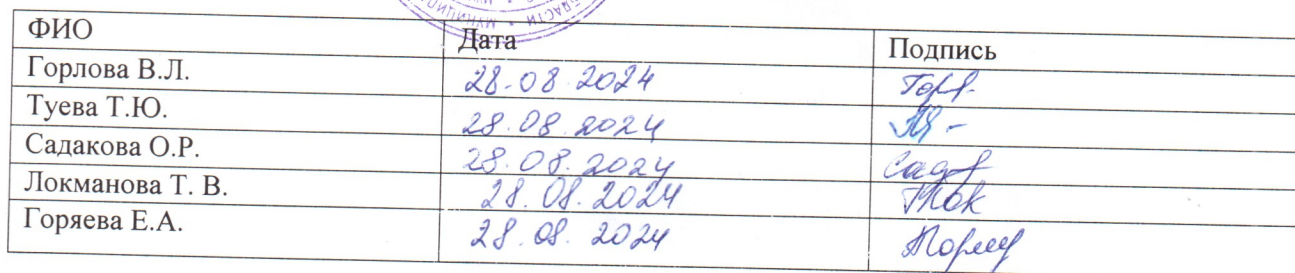 ФИО Дата Подпись
Горлова В.Л. 28.08.2024
Туева Т.Ю. 28.08.2024
Садакова О.Р. 28.08.2024
Локманова Т. В. 28.08.2024
Горяева Е.А. 28.08.2024